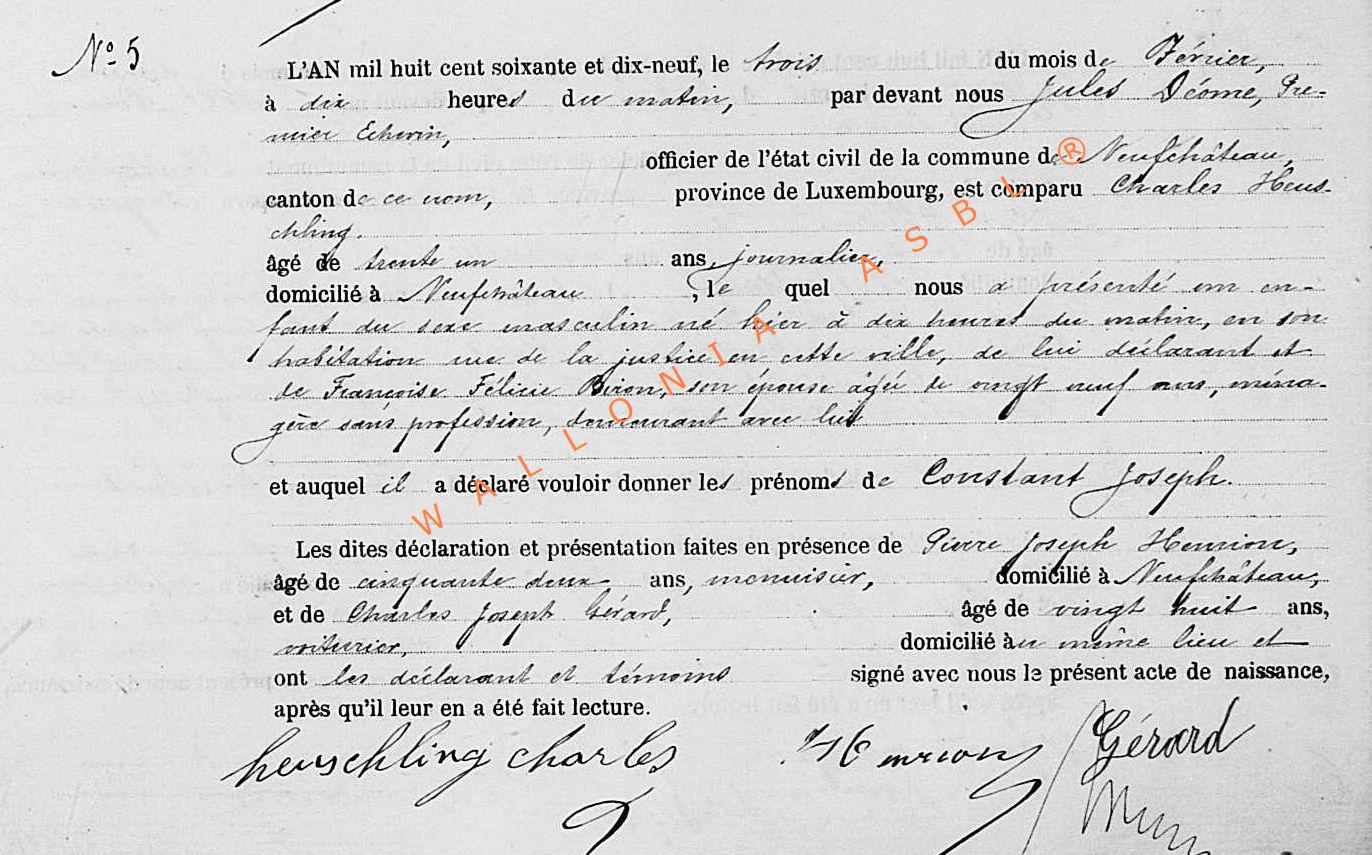 N° 5
L'AN mil huit cent soixante et dix-neuf, le trois du mois de Février,
à dix heures du matin, par devant nous Jules Déome, Pre-
mier Echevin,
officier de l'état civil de la commune de Neufchâteau,
canton de ce nom, province de Luxembourg, est comparu Charles Heus-
chling.
âgé de trente un ans, journalier,
domicilié à Neufchâteau, le quel nous a présenté un en-
fant du sexe masculin né hier à dix heures du matin, en son
habitation rue de la justice en cette ville, de lui déclarant et
de Françoise Félicie Biron, son épouse âgée de vingt neuf ans, ména-
gère sans profession, demeurant avec lui
et auquel il a déclaré vouloir donner les prénoms de Constant Joseph.
Les dites déclaration et présentation faites en présence de Pierre Joseph Henrion,
âgé de cinquante deux ans, menuisier, domicilié à Neufchâteau,
et de Charles Joseph Gérard, âgé de vingt huit ans,
voiturier, domicilié au même lieu et
ont les déclarant et témoins signé avec nous le présent acte de naissance,
après qu'il leur en a été fait lecture.
heuschling charles Henrion Gérard
WALLONIA ASBL ®